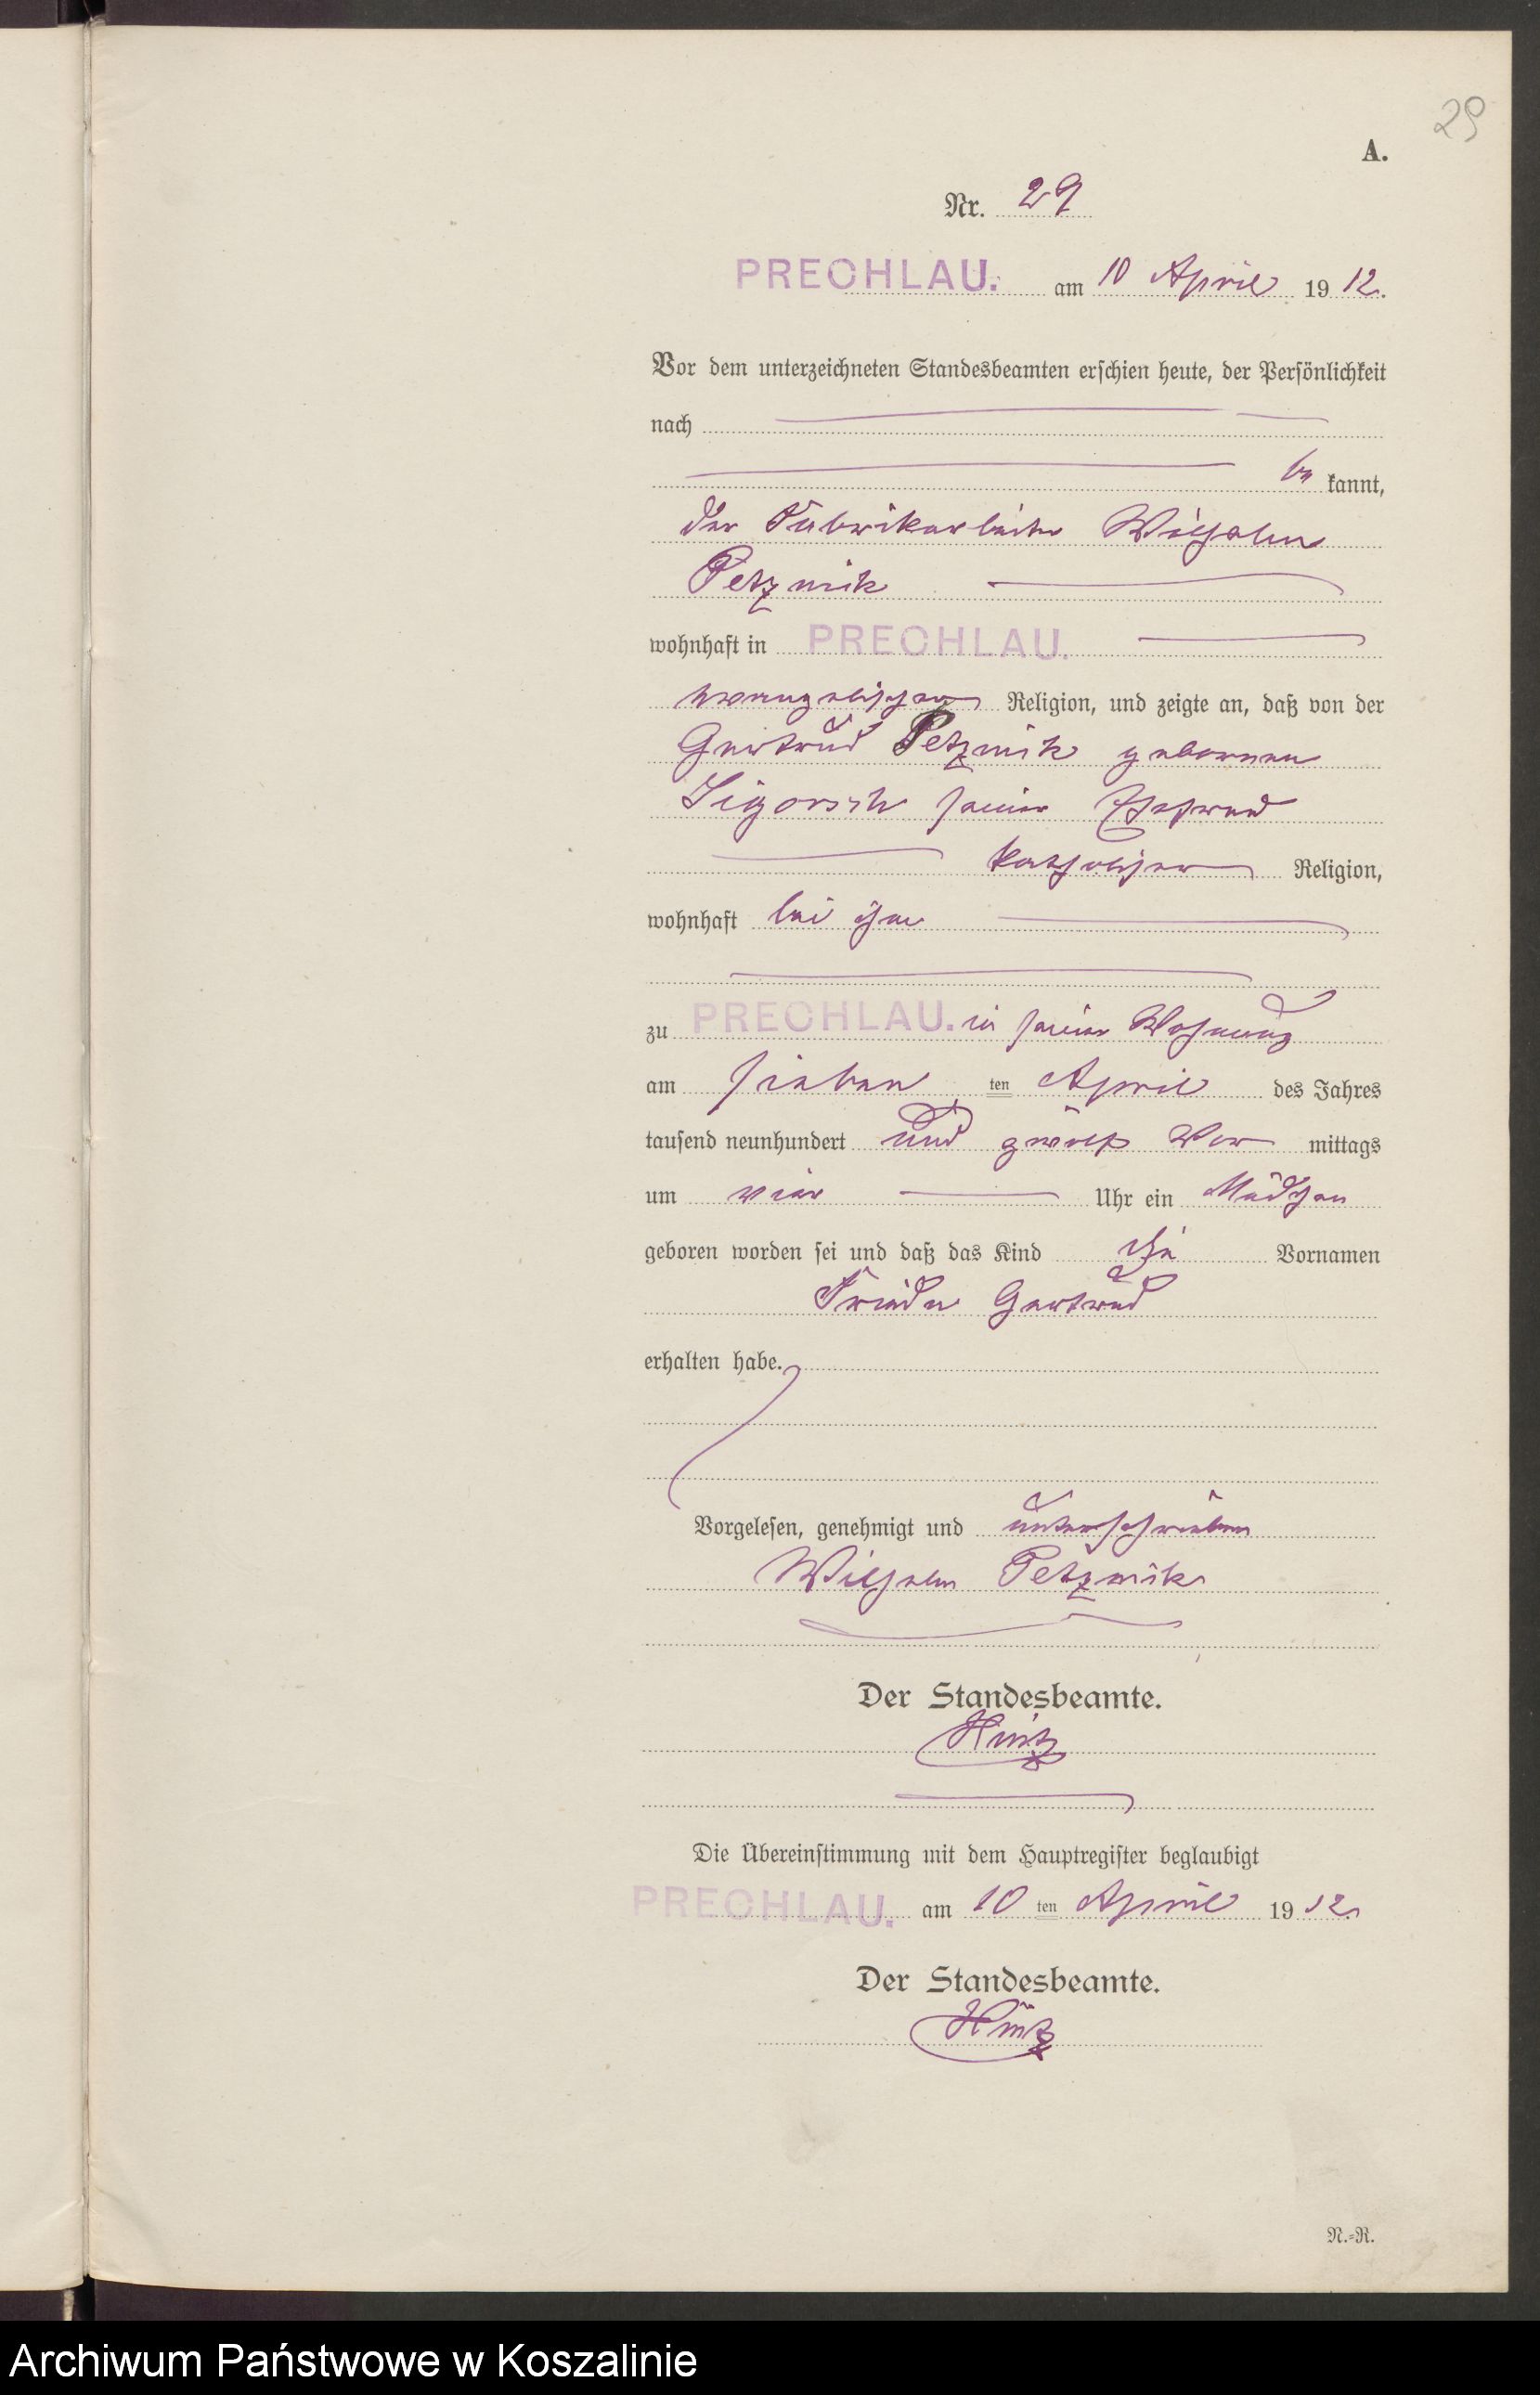 29
A.
Nr. 29
PRECHLAU. am 10 April 1912.
Vor dem unterzeichneten Standesbeamten erschien heute, der Persönlichkeit
nach
be kannt,
der Fabrikarbeiter Wilhelm
Petznik
wohnhaft in PRECHLAU.
evangelischer Religion, und zeigte an, daß von der
Gertrud Petznik geborenen
seiner Ehefrau
katholischer Religion,
wohnhaft bei ihm
zu PRECHLAU. in seiner Wohnung
am sieben ten April des Jahres
tausend neunhundert und zwölf Vor mittags
um vier Uhr ein Mädchen
geboren worden sei und daß das Kind die Vornamen
Frieda Gertrud
erhalten habe.
Vorgelesen, genehmigt und unterschrieben
Wilhelm Petznik
Der Standesbeamte.
Hintz
Die Übereinstimmung mit dem Hauptregister beglaubigt
PRECHLAU. am 10 ten April 1912.
Der Standesbeamte.
Hintz
N.=R.
Archiwum Państwowe w Koszalinie